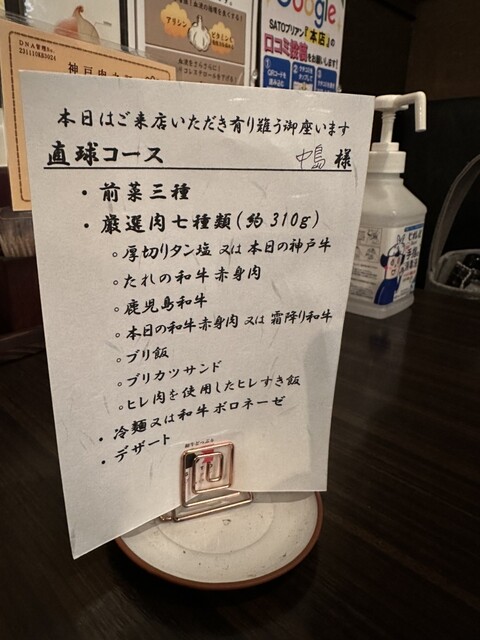 DNA管理No.
神戸肉
アリシン
ビタミン
Google
SATOブリアン「本店」の
口コミ投稿を
お願いします!
本日はご来店いただき有り難う御座います
直球コース 中島 様
・前菜三種
・厳選肉七種類(約310g)
○厚切りタン塩 又は 本日の神戸牛
○たれの和牛赤身肉
○鹿児島和牛
○本日の和牛赤身肉 又は 霜降り和牛
○ブリ飯
○ブリカツサンド
○ヒレ肉を使用したヒレすき飯
・冷麺 又は 和牛ボロネーゼ
・デザート